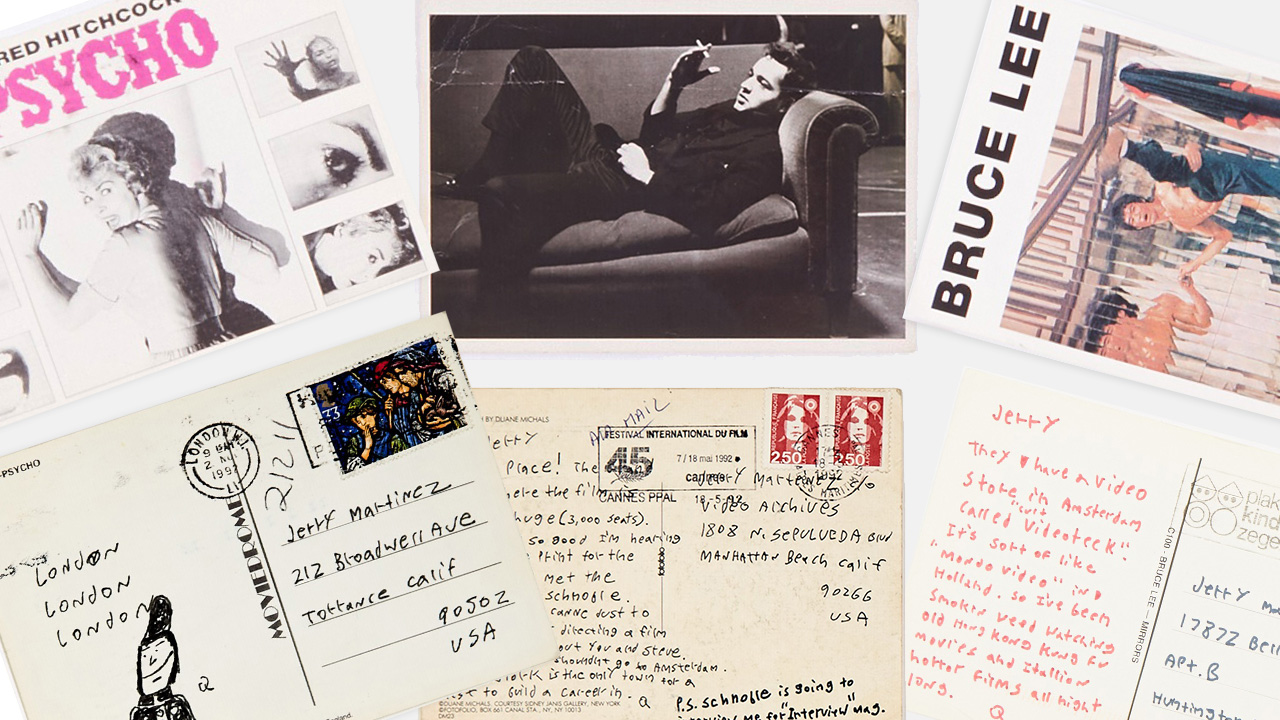 RED HITCHCOCK
PSYCHO
BRUCE LEE
-PSYCHO
LONDON W1
1992
2/21
33
MOVIEDROME
LONDON
LONDON
LONDON
Q
JerrY MartinEZ
212 Broadwell Ave
Torrance calif
90502
USA
H BY DUANE MICHALS
AIR MAIL
FESTIVAL INTERNATIONAL DU FILM
45
7/18 mai 1992
cannes
CANNES PPAL
18-5-92
2,50
2,50
JerrY
Place! The
here the film
huge (3,000 seats).
so good I'm hearing
Print for the
met the
schnoble.
canne Just to
directing a film
out You and Steve,
shouldnt go to Amsterdam.
rk is the only town for a
to build a career in.
Q
JerrY MartinEZ c/o
Video Archives
1808 N. SEPULVEDA Blvd
MANHATTAN Beach calif
90266
USA
P.S. schnoble is going to
interview me for "Interview" mag.
©DUANE MICHALS. COURTESY SIDNEY JANIS GALLERY, NEW YORK
©FOTOFOLIO, BOX 661 CANAL STA., NY, NY 10013
DM23
JerrY
They have a video
Store in Amsterdam
called "cult Videoteek".
It's sort of like
"Mondo video" in
Holland. so I've been
Smokin weed watching
old Hong Kong Kung Fu
movies and Itallion
horror films all night
long.
Q
C100 · BRUCE LEE – MIRRORS
plak
kind
zege
JerrY Ma
17872 Bel
APt. B
Huntingto